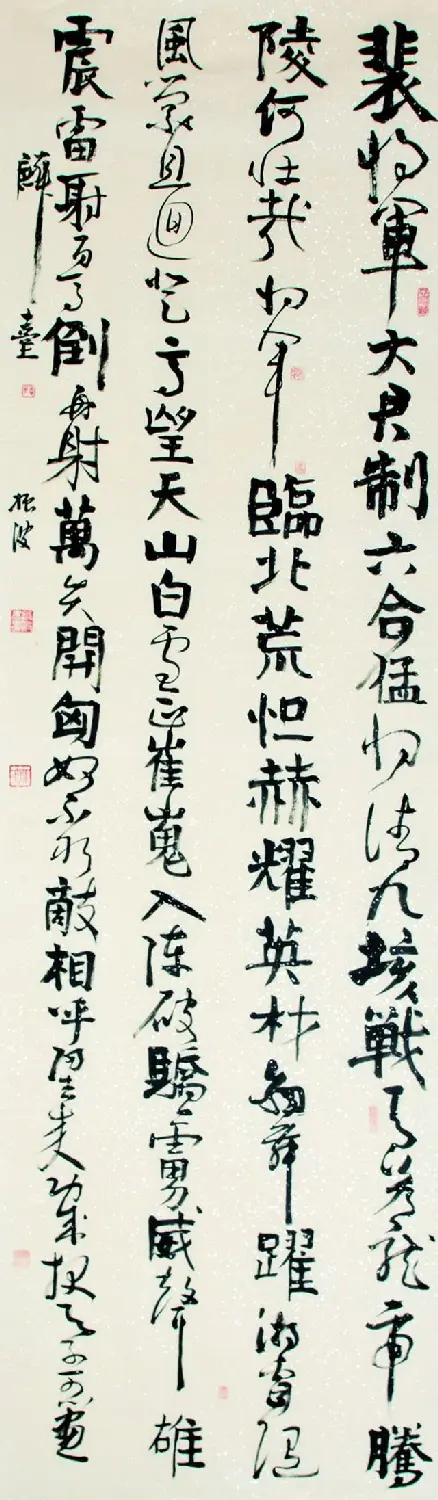 裴將軍大君制六合猛將清九垓戰馬若龍虎騰
陵何壮哉將軍臨北荒怛赫耀英材劍舞躍游電随
風縈且迴登高望天山白雪正崔嵬入陣破驕虜威聲雄
震雷射百馬倒再射萬夫開匈奴不敢敵相呼歸去来功成报天子可以畫
麟臺
振波